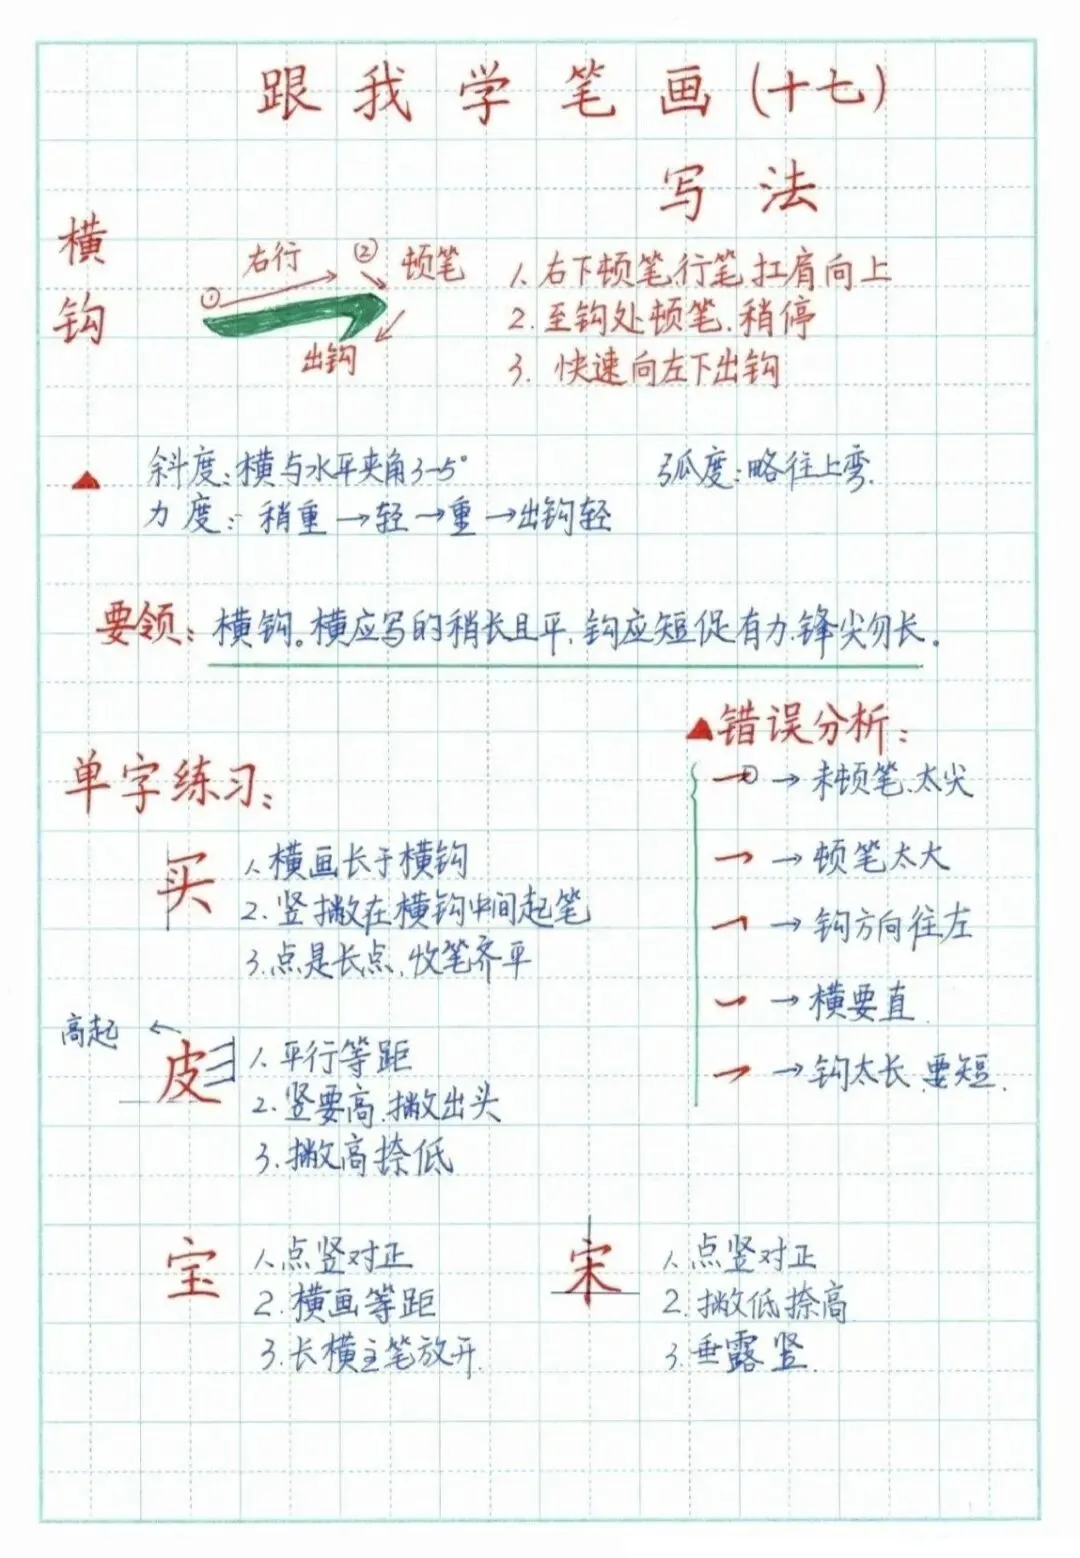 跟我学笔画(十七)
写法
横钩
① 右行 ② 顿笔
出钩
1. 右下顿笔,行笔扛肩向上
2. 至钩处顿笔.稍停
3. 快速向左下出钩
▲ 斜度:横与水平夹角3-5° 弧度:略往上弯.
力度:稍重→轻→重→出钩轻
要领:横钩。横应写的稍长且平,钩应短促有力.锋尖勿长。
▲错误分析:
→未顿笔.太尖
→顿笔太大
→钩方向往左
→横要直.
→钩太长.要短.
单字练习:
买
1. 横画长于横钩
2. 竖撇在横钩中间起笔
3. 点是长点,收笔齐平
高起
皮
1. 平行等距
2. 竖要高.撇出头
3. 撇高捺低
宝
1. 点竖对正
2. 横画等距
3. 长横主笔放开.
宋
1. 点竖对正
2. 撇低捺高
3. 垂露竖.